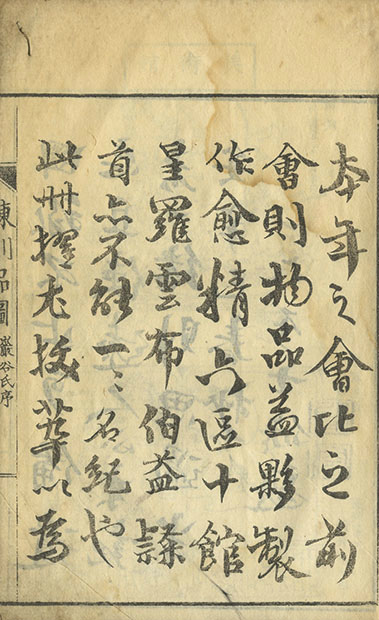 本年之會比之前
會則物品益夥製
作愈精六區十館
星羅雲布伯益隸
首亦不能一〻名紀也
此冊擢尤拔萃以為
列品圖 巖谷氏序